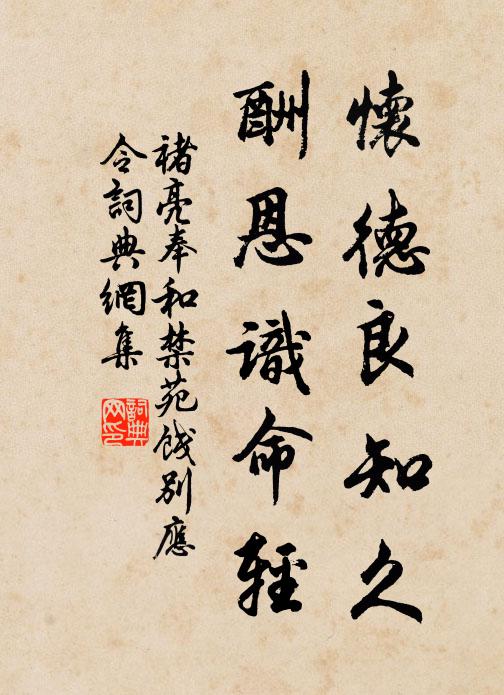 懷德良知久
酬恩識命輕
褚亮奉和禁苑餞別應
令詞典網集
詞典网印